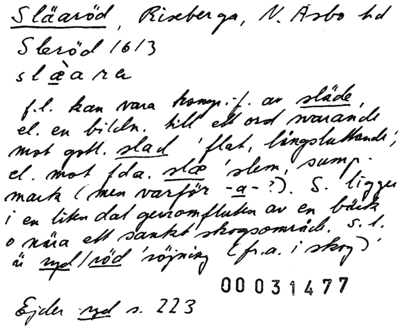 Släaröd, Riseberga, N. Åsbo hd
Sleröd 1613
slæ̀ara
f.l. kan vara komp.-f. av släde,
el. en bildn. till ett ord svarande
mot gotl. slad 'flat, långsluttande',
el. mot fda. slæ 'slem, sump-
mark (men varför -a-?). S. ligger
i en liten dal genomfluten av en bäck
o nära ett sankt skogsområde. S.l.
är ryd/röd 'röjning (fr.a. i skog)'
00031477
Ejder ryd s. 223